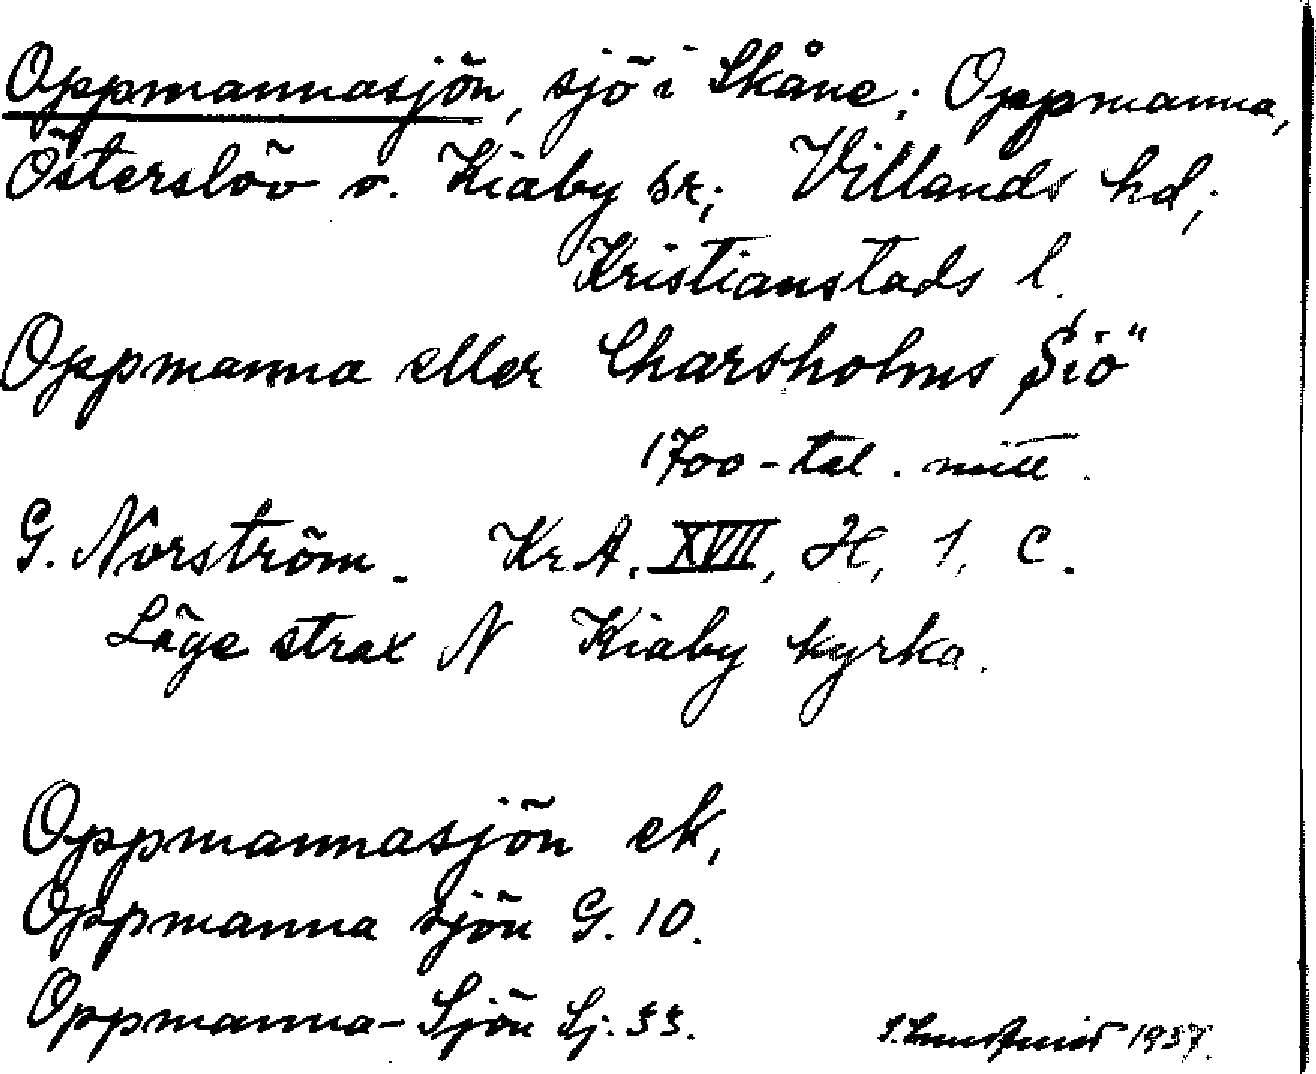 Oppmannasjön, sjö i Skåne; Oppmanna,
Österslöv o. Kiaby sr; Villands hd;
Kristianstads l.
Oppmanna eller Charsholms Siö"
1700-tal. mitt.
G. Norström. Kr.A. XVII, H, 1, C.
Läge strax N Kiaby kyrka.
Oppmannasjön ek,
Oppmanna sjön G. 10.
Oppmanna-Sjön Sj. 33.
S. Lundquist 1937.